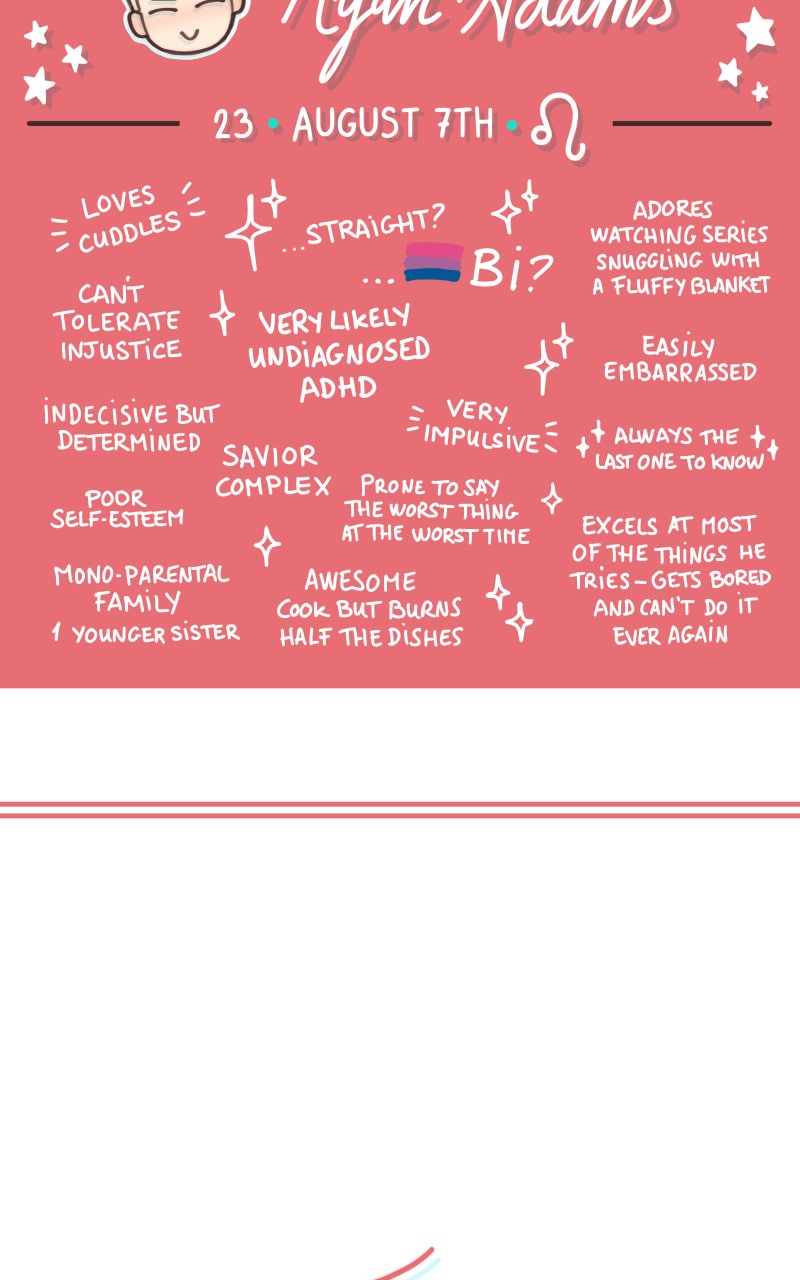 Ryan Adams
23 • AUGUST 7TH • ♌
LOVES
CUDDLES
...STRAIGHT?
... Bi?
ADORES
WATCHING SERIES
SNUGGLING WITH
A FLUFFY BLANKET
CAN'T
TOLERATE
INJUSTICE
VERY LIKELY
UNDIAGNOSED
ADHD
EASILY
EMBARRASSED
INDECISIVE BUT
DETERMINED
VERY
IMPULSIVE
ALWAYS THE
LAST ONE TO KNOW
SAVIOR
COMPLEX
POOR
SELF-ESTEEM
PRONE TO SAY
THE WORST THING
AT THE WORST TIME
EXCELS AT MOST
OF THE THINGS HE
TRIES - GETS BORED
AND CAN'T DO IT
EVER AGAIN
MONO-PARENTAL
FAMILY
1 YOUNGER SISTER
AWESOME
COOK BUT BURNS
HALF THE DISHES